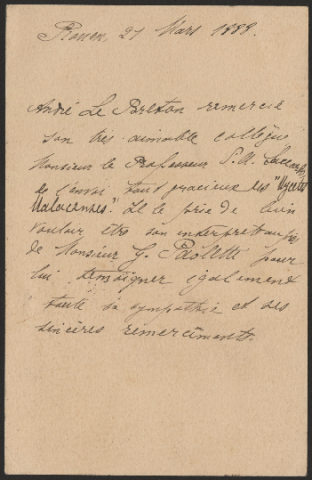 Rouen, 27 Mars 1889.
André Le Breton remercie
son très aimable collègue
Monsieur le Professeur P. A. Saccardo
de l'envoi tout gracieux des "Mycetes
Malacenses". Il le prie de bien
vouloir être son interprète auprès
de Monsieur G. Paoletti pour
lui témoigner également
toute sa sympathie et ses
sincères remerciments.